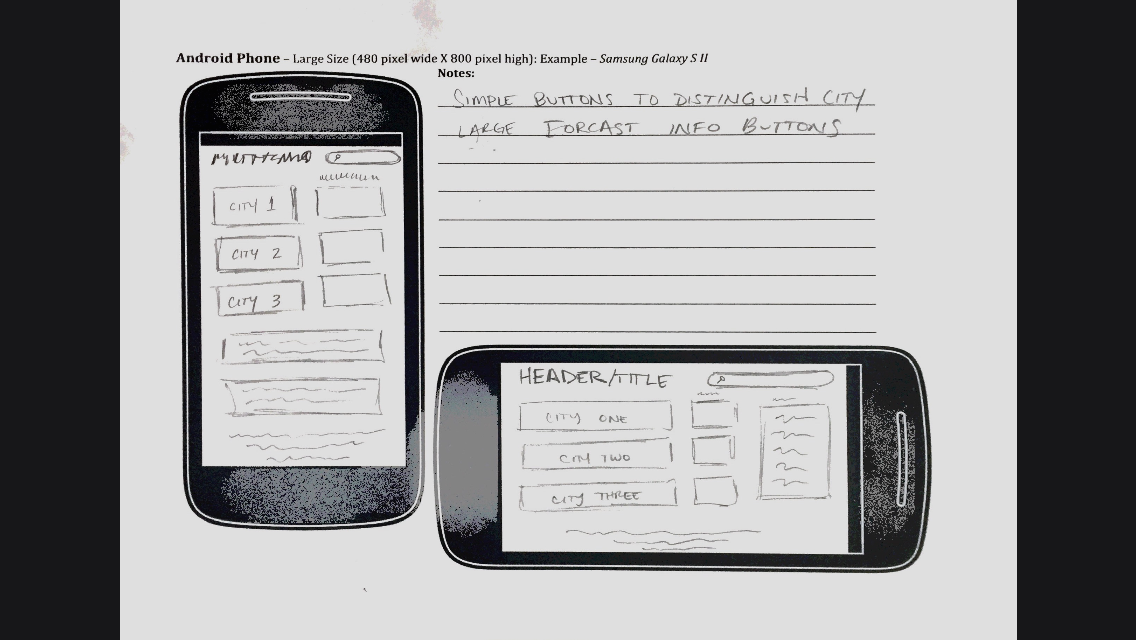 Android Phone – Large Size (480 pixel wide X 800 pixel high): Example – Samsung Galaxy S II
Notes:
SIMPLE BUTTONS TO DISTINGUISH CITY
LARGE FORCAST INFO BUTTONS
CITY 1
CITY 2
CITY 3
HEADER/TITLE
CITY ONE
CITY TWO
CITY THREE